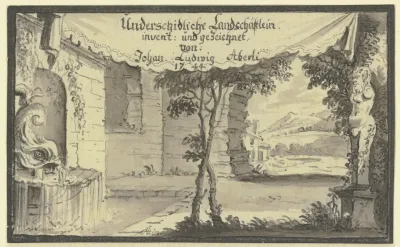 Underschidliche Landschäftlein.
invent: und gezeichnet,
von.
Johan. Ludwig Aberli
1744.